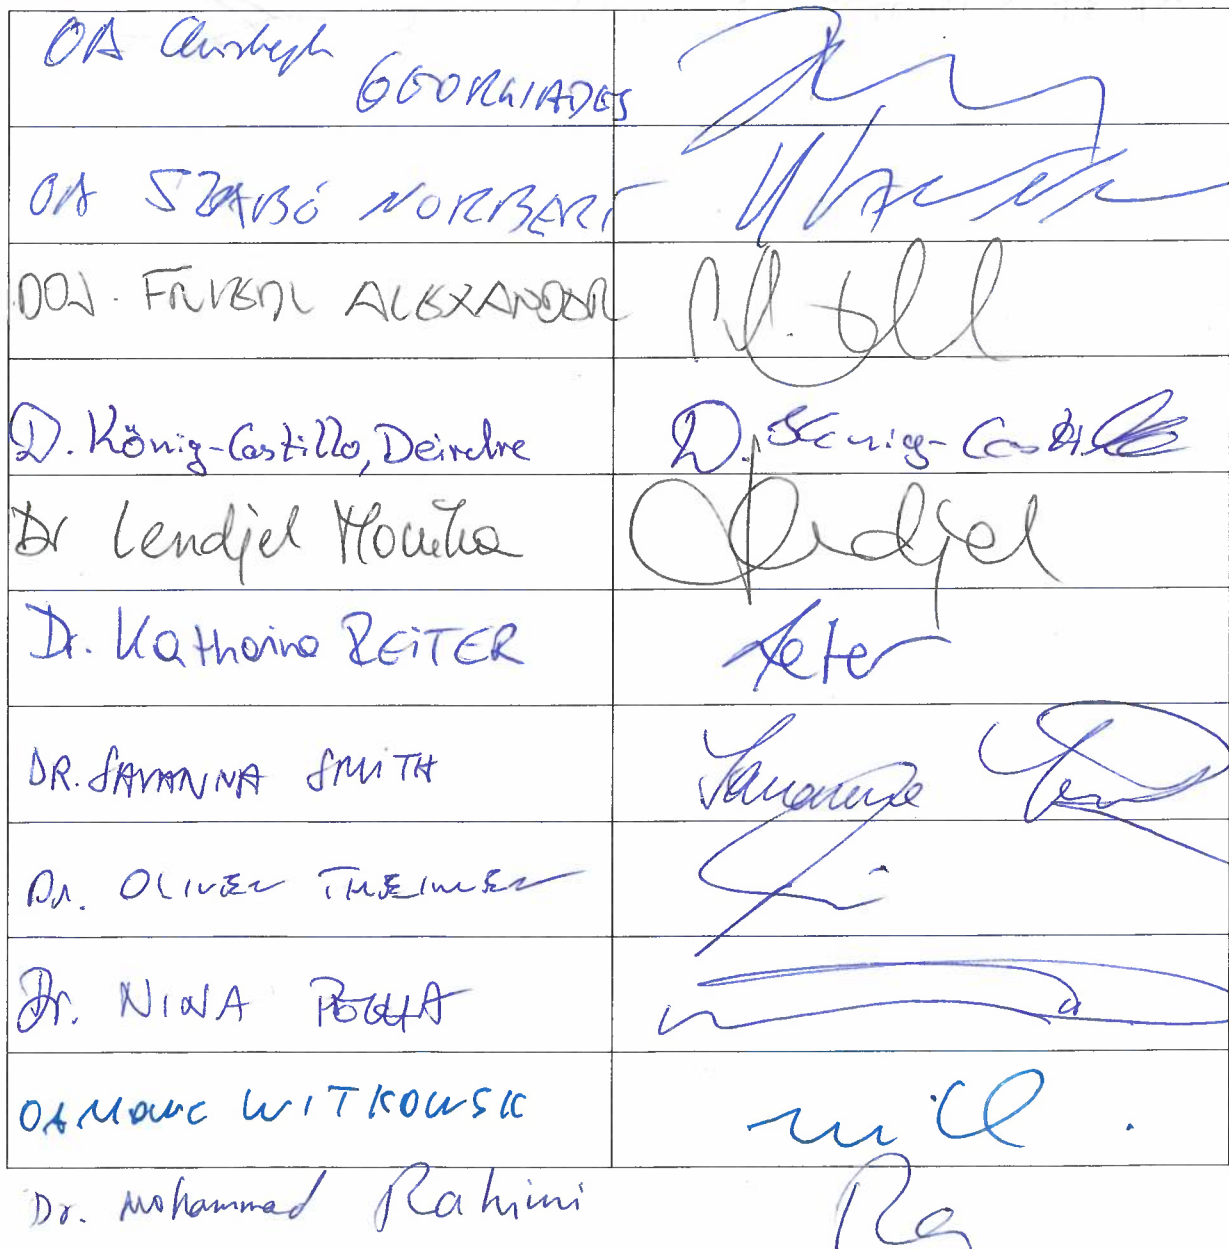 OA Christoph
GEORGIADES
OA SZABÓ NORBERT
DOA. FRIEDL ALEXANDER
D. König-Castillo, Deirdre D. König-Castillo
Dr Lendjel Monika Lendjel
Dr. Katharina REITER Reiter
DR. SAVANNA SMITH Savanna
Dr. OLIVER THEIMER
Dr. NINA
OA Marc WITKOWSK
Dr. Mohammad Rahimi Ra